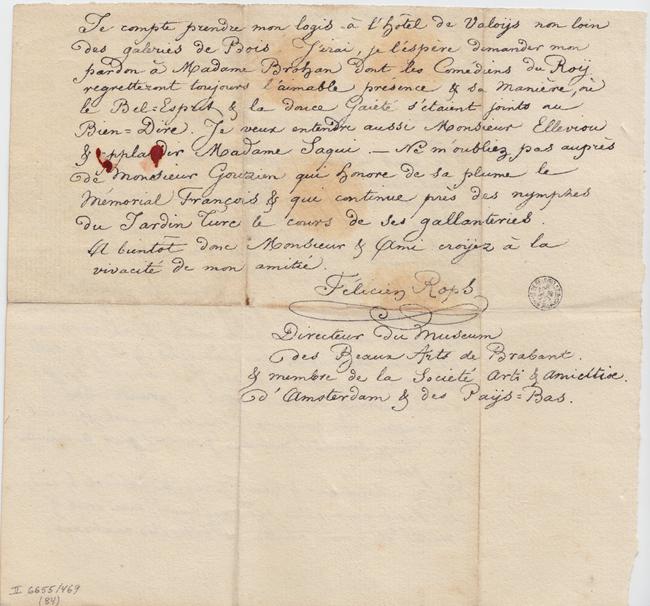 Je compte prendre mon logis à l'hôtel de Valoijs non loin
des galeries de Bois J'irai, je l'espère demander mon
pardon à Madame Brohan dont les Comédiens du Roij
regretteront toujours l'aimable presence & sa Manière, où
le Bel=Esprit & la douce Gaieté s'étaient joints au
Bien=Dire. Je veux entendre aussi Monsieur Elleviou
& applaudir Madame Saqui. — Ne m'oubliez pas auprès
de Monsieur Gouzien qui honore de sa plume le
Mémorial François & qui continue près des nymphes
du Jardin Turc le cours de ses gallanteries.
A bientôt donc Monsieur & Ami croyez à la
vivacité de mon amitié.
Félicien Rops
Directeur du Museum
des Beaux Arts de Brabant.
& membre de la Societé Arti & Amicitiæ.
d'Amsterdam & des Païjs=Bas.
II 6655/469
(84)